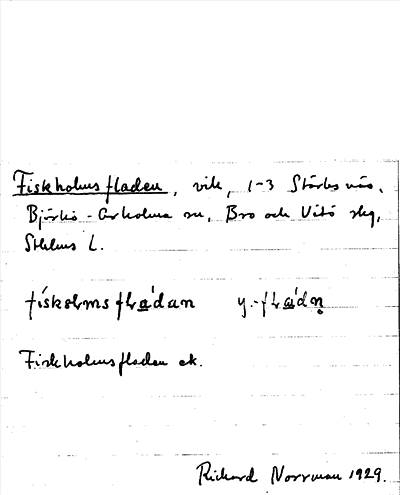 Fiskholmsfladen, vik, 1-3 Stärbsnäs,
Björkö-Arholma sn, Bro och Vätö skg,
Sthlms L.
fískɵlmsflàdan y.-flàdn̥
Fiskholmsfladen ek.
Richard Norrman 1929.